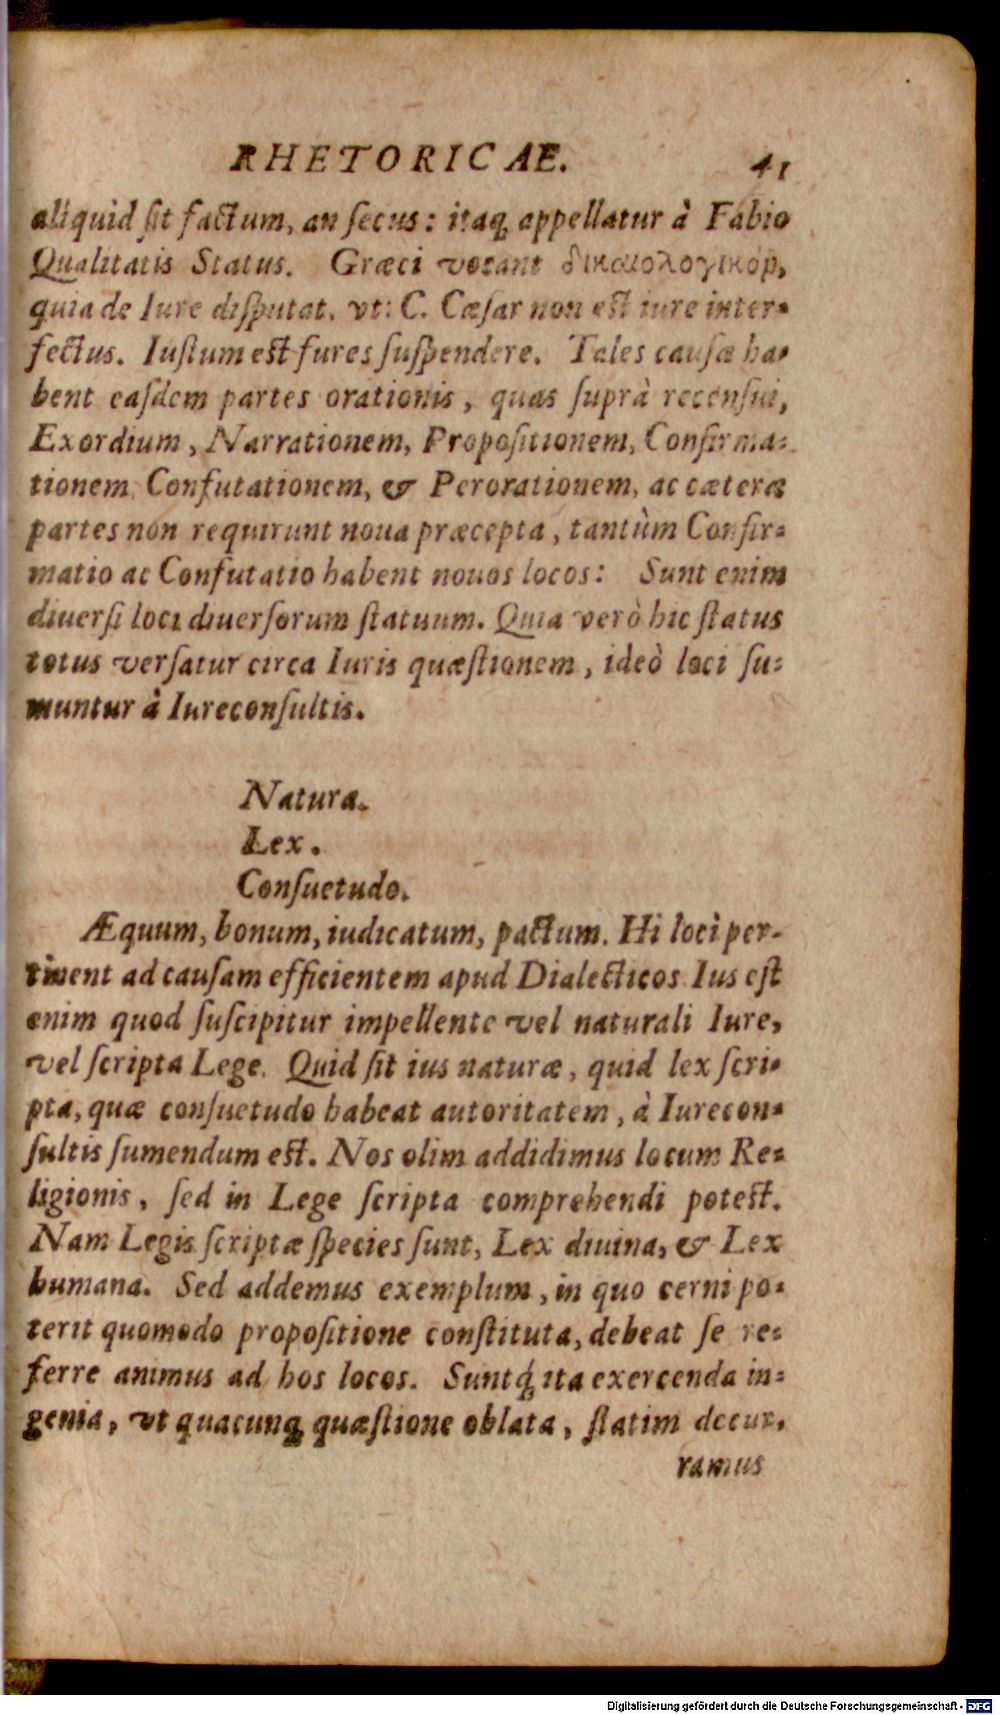 RHETORICAE. 41
aliquid ſit factum, an ſecus: itaq; appellatur à Fabio
Qualitatis Status. Græci vocant δικαιολογικόν,
quia de Iure diſputat. vt: C. Cæſar non est iure inter-
fectus. Iuſtum est fures ſuſpendere. Tales cauſæ ha-
bent eaſdem partes orationis, quas ſuprà recenſui,
Exordium, Narrationem, Propoſitionem, Confirma-
tionem Confutationem, & Perorationem, ac cæteræ
partes non requirunt noua præcepta, tantùm Confir-
matio ac Confutatio habent nouos locos: Sunt enim
diuerſi loci diuerſorum ſtatuum. Quia verò hic ſtatus
totus verſatur circa Iuris quæſtionem, ideò loci ſu-
muntur à Iureconſultis.
Natura.
Lex.
Conſuetudo.
Æquum, bonum, iudicatum, pactum. Hi loci per-
tinent ad cauſam efficientem apud Dialecticos Ius eſt
enim quod ſuſcipitur impellente vel naturali Iure,
vel ſcripta Lege. Quid ſit ius naturæ, quid lex ſcri-
pta, quæ conſuetudo habeat autoritatem, à Iurecon-
ſultis ſumendum est. Nos olim addidimus locum Re-
ligionis, ſed in Lege ſcripta comprehendi potest.
Nam Legis ſcriptæ ſpecies ſunt, Lex diuina, & Lex
humana. Sed addemus exemplum, in quo cerni po-
terit quomodo propoſitione conſtituta, debeat ſe re-
ferre animus ad hos locos. Suntq́; ita exercenda in-
genia, vt quacunq; quæſtione oblata, ſtatim decur-
ramus
Digitalisierung gefördert durch die Deutsche Forschungsgemeinschaft - DFG